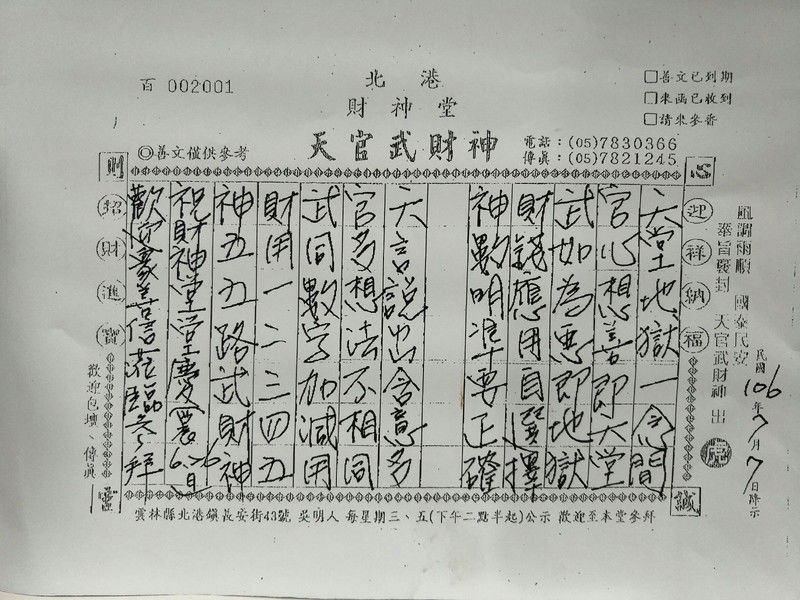 百 002001
北港
財神堂
天官武財神
◎善文僅供參考
□善文已到期
□來函已收到
□請來參香
電話：(05)7830366
傳真：(05)7821245
心
誠
則
靈
迎祥納福
招財進寶
風調雨順 國泰民安
奉旨發封 天官武財神 出
民國106年7月7日降示
天堂地獄一念間
官心想善即天堂
武如為惡即地獄
財錢應用自選擇
神數明準要正確
天言說出含意多
官多想法不相同
武同數字加減用
財用一二三四五
神五五路武財神
祝財神堂堂慶農6.26日
歡迎眾善信蒞臨參拜
歡迎包壇、傳真
雲林縣北港鎮長安街43號 吳明人 每星期三、五(下午二點半起)公示 歡迎至本堂參拜